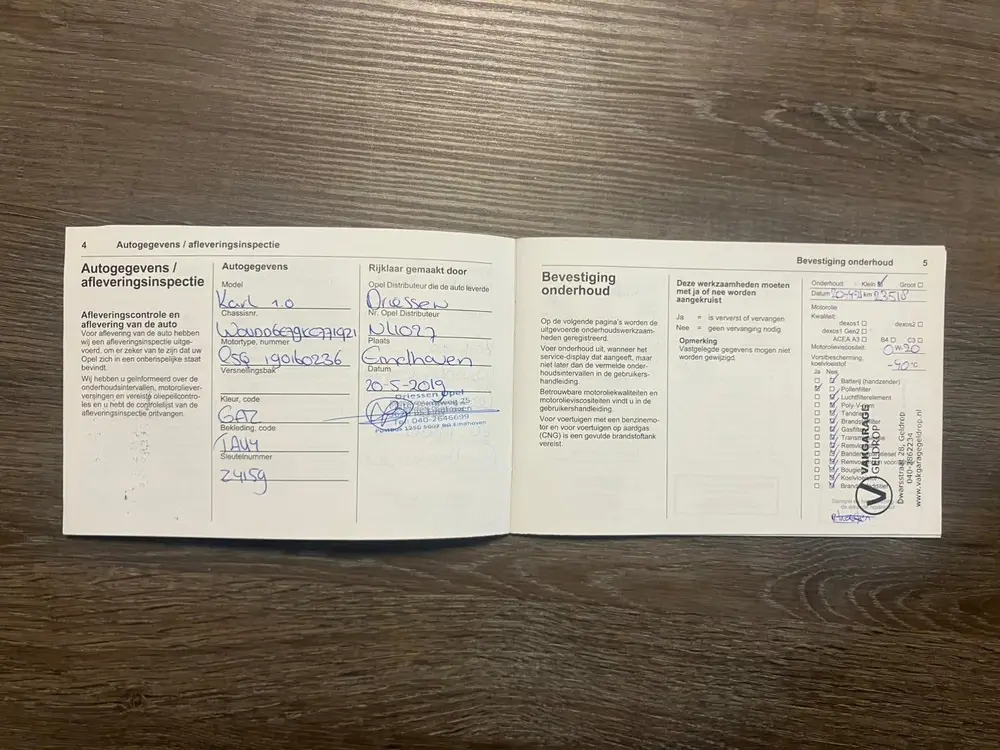 4 Autogegevens / afleveringsinspectie
Autogegevens /
afleveringsinspectie
Afleveringscontrole en
aflevering van de auto
Voor aflevering van de auto hebben
wij een afleveringsinspectie uitge-
voerd, om er zeker van te zijn dat uw
Opel zich in een onberispelijke staat
bevindt.
Wij hebben u geïnformeerd over de
onderhoudsintervallen, motoroliever-
versingen en vereiste oliepeilcontro-
les en u hebt de controlelijst van de
afleveringsinspectie ontvangen.
Autogegevens
Model
Karl 1.0
Chassisnr.
Motortype, nummer
190160236
Versnellingsbak
Kleur, code
GAZ
Bekleding, code
TAUY
Sleutelnummer
Rijklaar gemaakt door
Opel Distributeur die de auto leverde
Driessen
Nr. Opel Distributeur
NL1027
Plaats
Eindhoven
Datum
20-5-2019
Driessen Opel
Tel: 040-2646699
Bevestiging onderhoud 5
Bevestiging
onderhoud
Op de volgende pagina's worden de
uitgevoerde onderhoudswerkzaam-
heden geregistreerd.
Voer onderhoud uit, wanneer het
service-display dat aangeeft, maar
niet later dan de vermelde onder-
houdsintervallen in de gebruikers-
handleiding.
Betrouwbare motoroliekwaliteiten en
motorolieviscositeiten vindt u in de
gebruikershandleiding.
Voor voertuigen met een benzinemo-
tor en voor voertuigen op aardgas
(CNG) is een gevulde brandstoftank
vereist.
Deze werkzaamheden moeten
met ja of nee worden
aangekruist
Ja = is ververst of vervangen
Nee = geen vervanging nodig
Opmerking
Vastgelegde gegevens mogen niet
worden gewijzigd.
Onderhoud: Klein Groot
Datum km 23518
Motorolie
Kwaliteit:
dexos1 dexos2
dexos1 Gen2
ACEA A3 B4 C3
Motorolieviscositeit: 0W-20
Vorstbescherming,
koelvloeistof -40°C
Ja Nee
Batterij (handzender)
Pollenfilter
Luchtfilterelement
Poly-V-riem
VAKGARAGE
GELDROP
Dwarsstraat 28, Geldrop
040-2862234
www.vakgaragegeldrop.nl